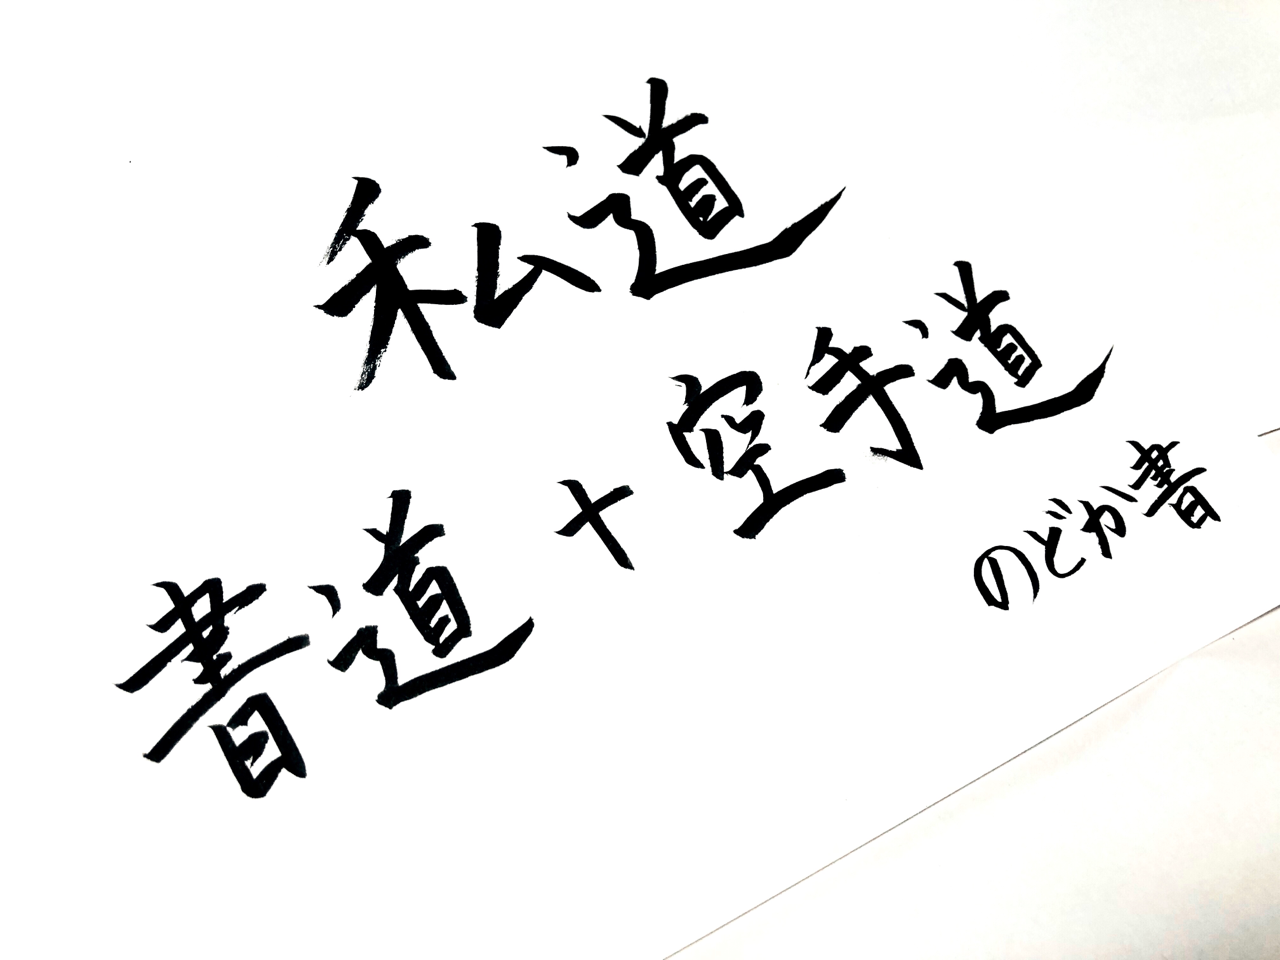 私道
書道+空手道
のどか書